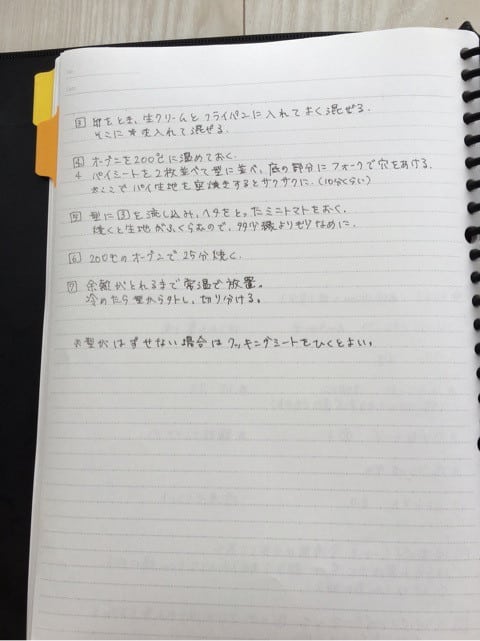 ③ 卵をとき、生クリームとフライパンに入れてよく混ぜる。
そこに*を入れて混ぜる。
④ オーブンを200℃に温めておく。
4 パイシートを2枚並べて型に並べ、底の部分にフォークで穴をあける。
※ここでパイ生地を空焼きするとサクサクに。(10分くらい)
⑤ 型に③を流し込み、ヘタをとったミニトマトをおく。
焼くと生地がふくらむので、99少縁よりもひかえめに。
⑥ 200℃のオーブンで25分焼く。
⑦ 余熱がとれるまで常温で放置。
冷めたら型から外し、切り分ける。
※型がはずせない場合はクッキングシートをひくとよい。